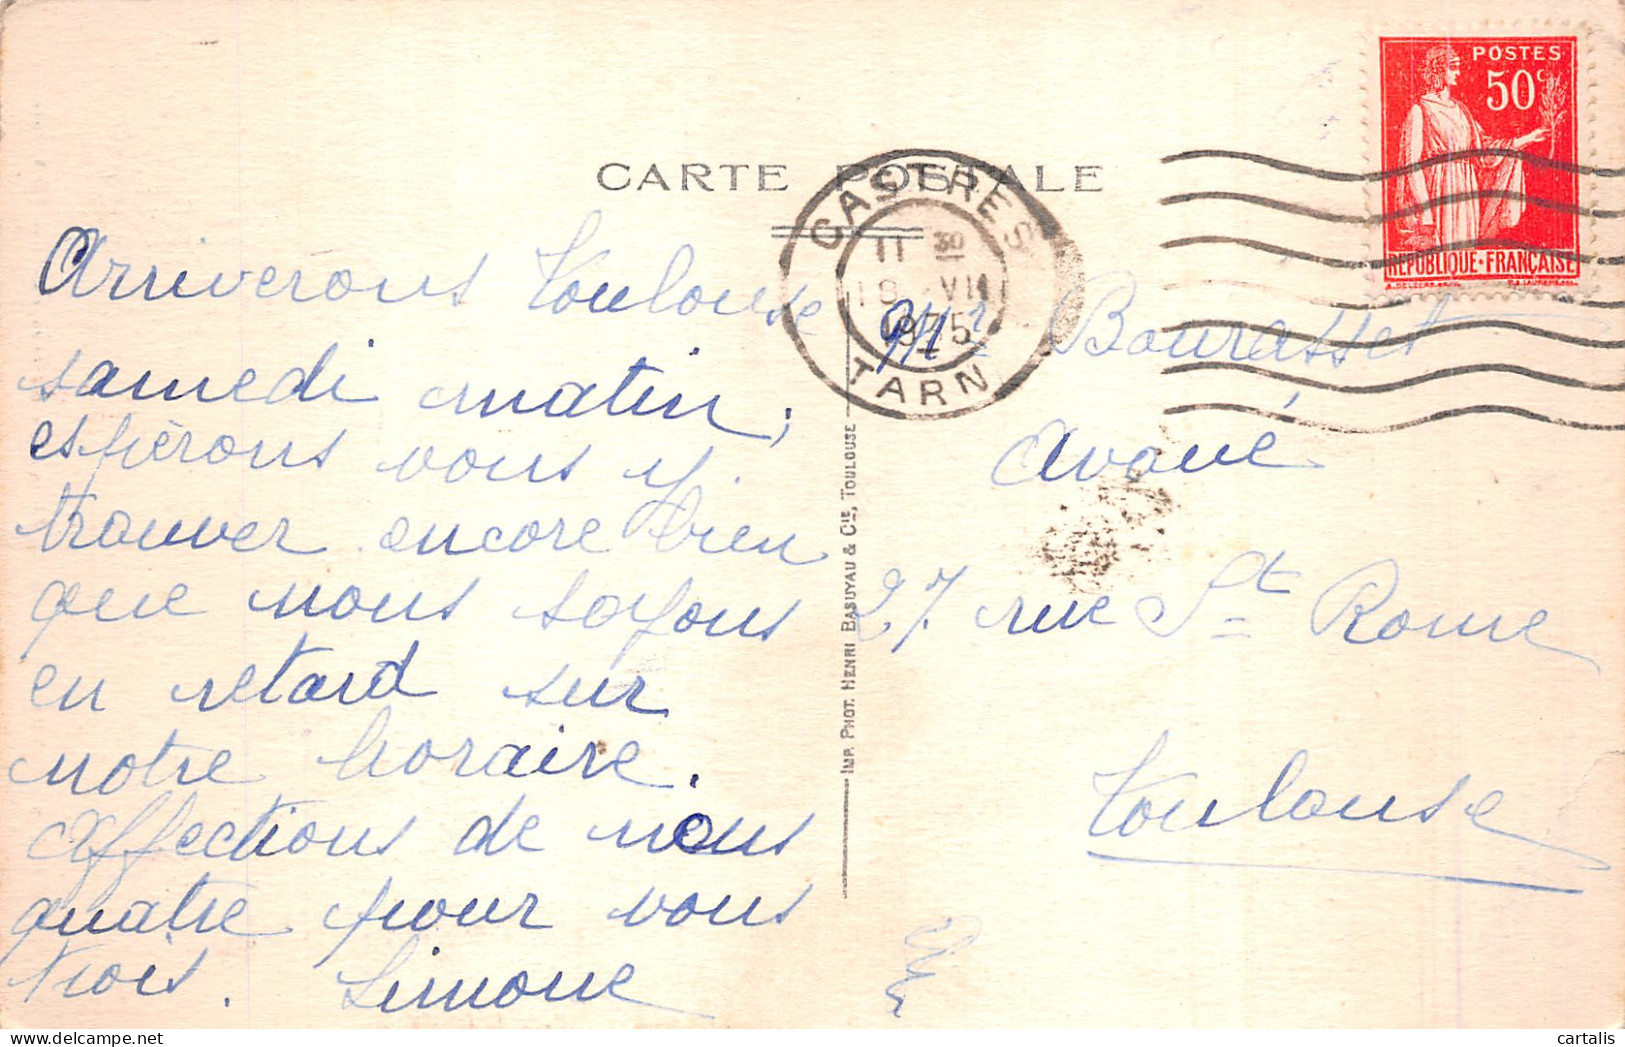 CARTE POSTALE
POSTES
50c
RÉPUBLIQUE·FRANÇAISE
CASTRES
11 30
1975
TARN
Arriverons Toulouse
samedi matin,
espérons vous y
trouver encore bien
que nous soyons
en retard sur
notre horaire.
Affections de nous
quatre pour vous
trois. Simone
IMP. PHOT. HENRI BASUYAU & CIE, TOULOUSE
Bourasset
Avoué
27 rue St Rome
Toulouse
cartalis
www.delcampe.net